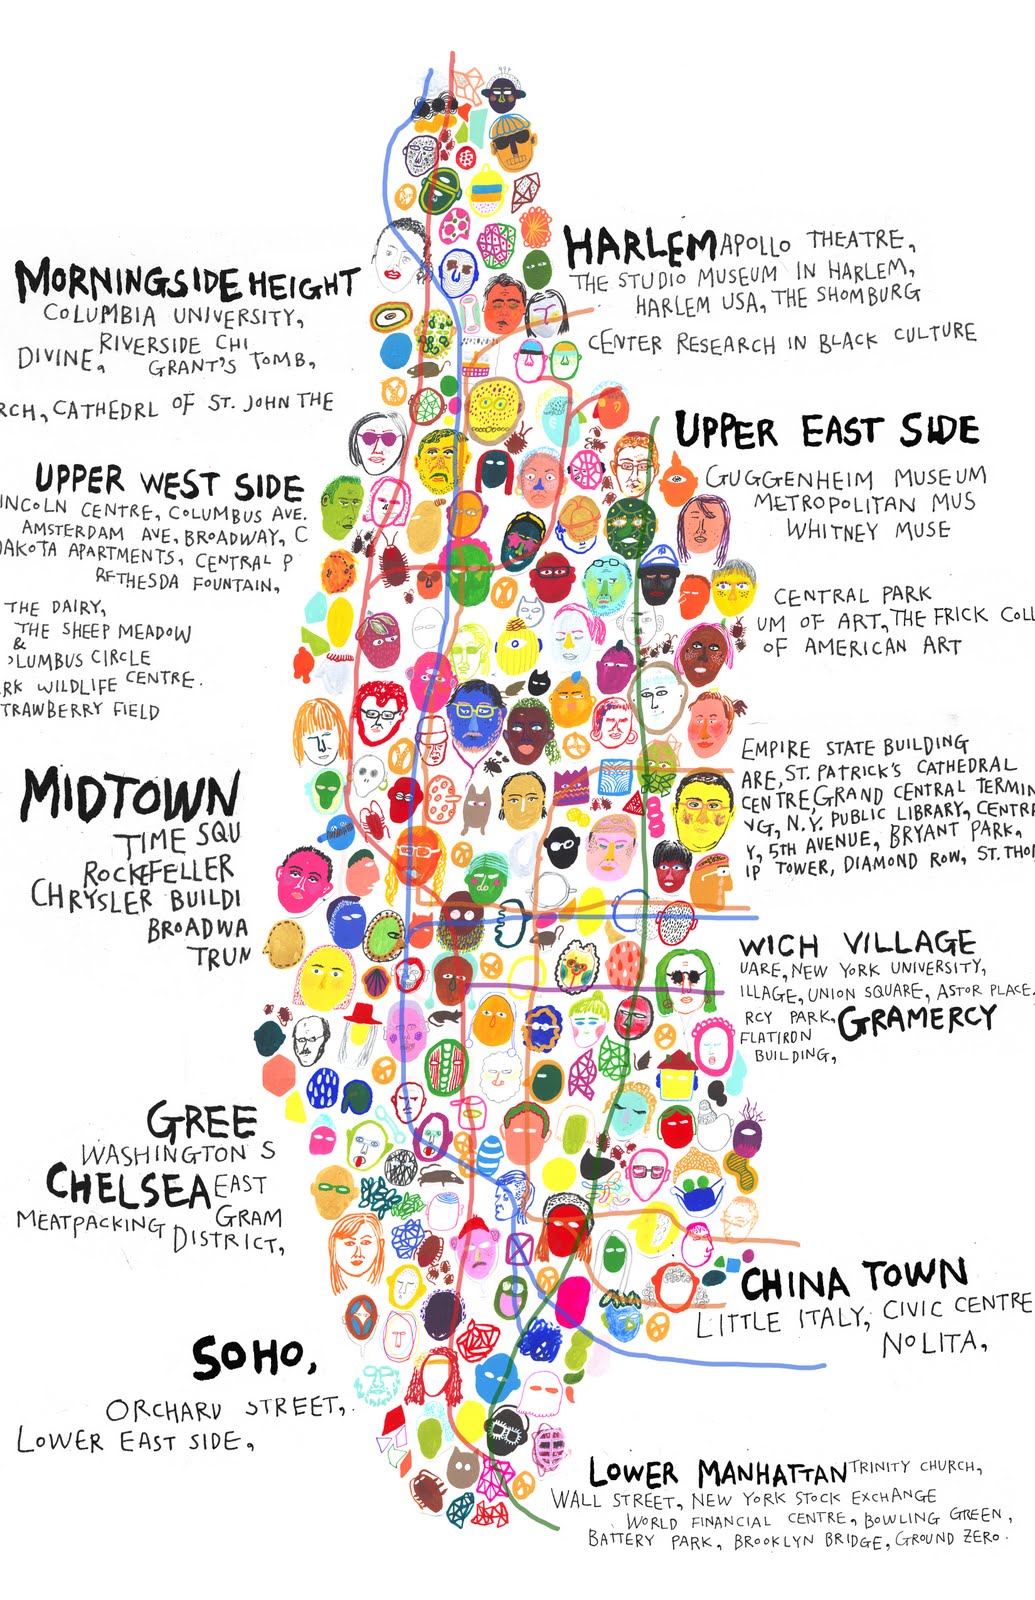 HARLEM APOLLO THEATRE,
THE STUDIO MUSEUM IN HARLEM,
HARLEM USA, THE SHOMBURG
CENTER RESEARCH IN BLACK CULTURE
MORNINGSIDE HEIGHT
COLUMBIA UNIVERSITY,
RIVERSIDE CHI
DIVINE, GRANT'S TOMB,
RCH, CATHEDRL OF ST. JOHN THE
UPPER EAST SIDE
GUGGENHEIM MUSEUM
METROPOLITAN MUS
WHITNEY MUSE
UPPER WEST SIDE
INCOLN CENTRE, COLUMBUS AVE.
AMSTERDAM AVE, BROADWAY, C
DAKOTA APARTMENTS, CENTRAL P
BETHESDA FOUNTAIN,
THE DAIRY,
THE SHEEP MEADOW
&
OLUMBUS CIRCLE
RK WILDLIFE CENTRE.
TRAWBERRY FIELD
CENTRAL PARK
UM OF ART, THE FRICK COLL
OF AMERICAN ART
MIDTOWN
TIME SQU
ROCKEFELLER
CHRYSLER BUILDI
BROADWA
TRUN
EMPIRE STATE BUILDING
ARE, ST. PATRICK'S CATHEDRAL
CENTRE, GRAND CENTRAL TERMIN
NG, N.Y. PUBLIC LIBRARY, CENTRA
Y, 5TH AVENUE, BRYANT PARK,
IP TOWER, DIAMOND ROW, ST. THO
WICH VILLAGE
UARE, NEW YORK UNIVERSITY,
ILLAGE, UNION SQUARE, ASTOR PLACE.
RCY PARK, GRAMERCY
FLATIRON
BUILDING,
GREE
WASHINGTON S
CHELSEA EAST
MEATPACKING GRAM
DISTRICT,
CHINA TOWN
LITTLE ITALY, CIVIC CENTRE
NOLITA,
SOHO,
ORCHARD STREET,
LOWER EAST SIDE,
LOWER MANHATTAN TRINITY CHURCH,
WALL STREET, NEW YORK STOCK EXCHANGE
WORLD FINANCIAL CENTRE, BOWLING GREEN,
BATTERY PARK, BROOKLYN BRIDGE, GROUND ZERO.